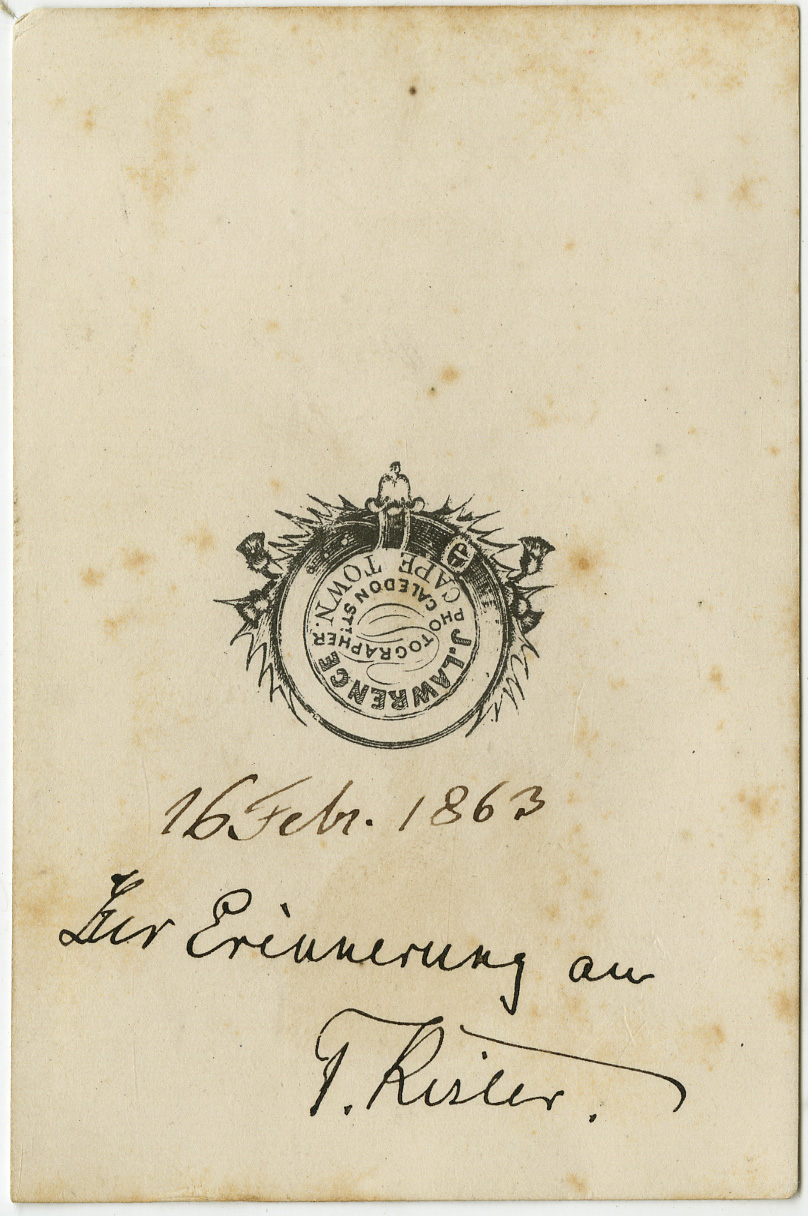 J. LAWRENCE
PHOTOGRAPHER
CALEDON ST.
CAPE TOWN.
16 Febr. 1863
Zur Erinnerung an
T.